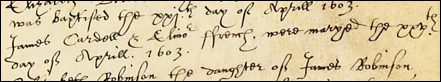 was baptised the xxjth day of Aprill 1603.
James Cardell & Elinor ffrench were maryed the xxvth
day of Aprill. 1603.
Robinson the daughter of James Robinson